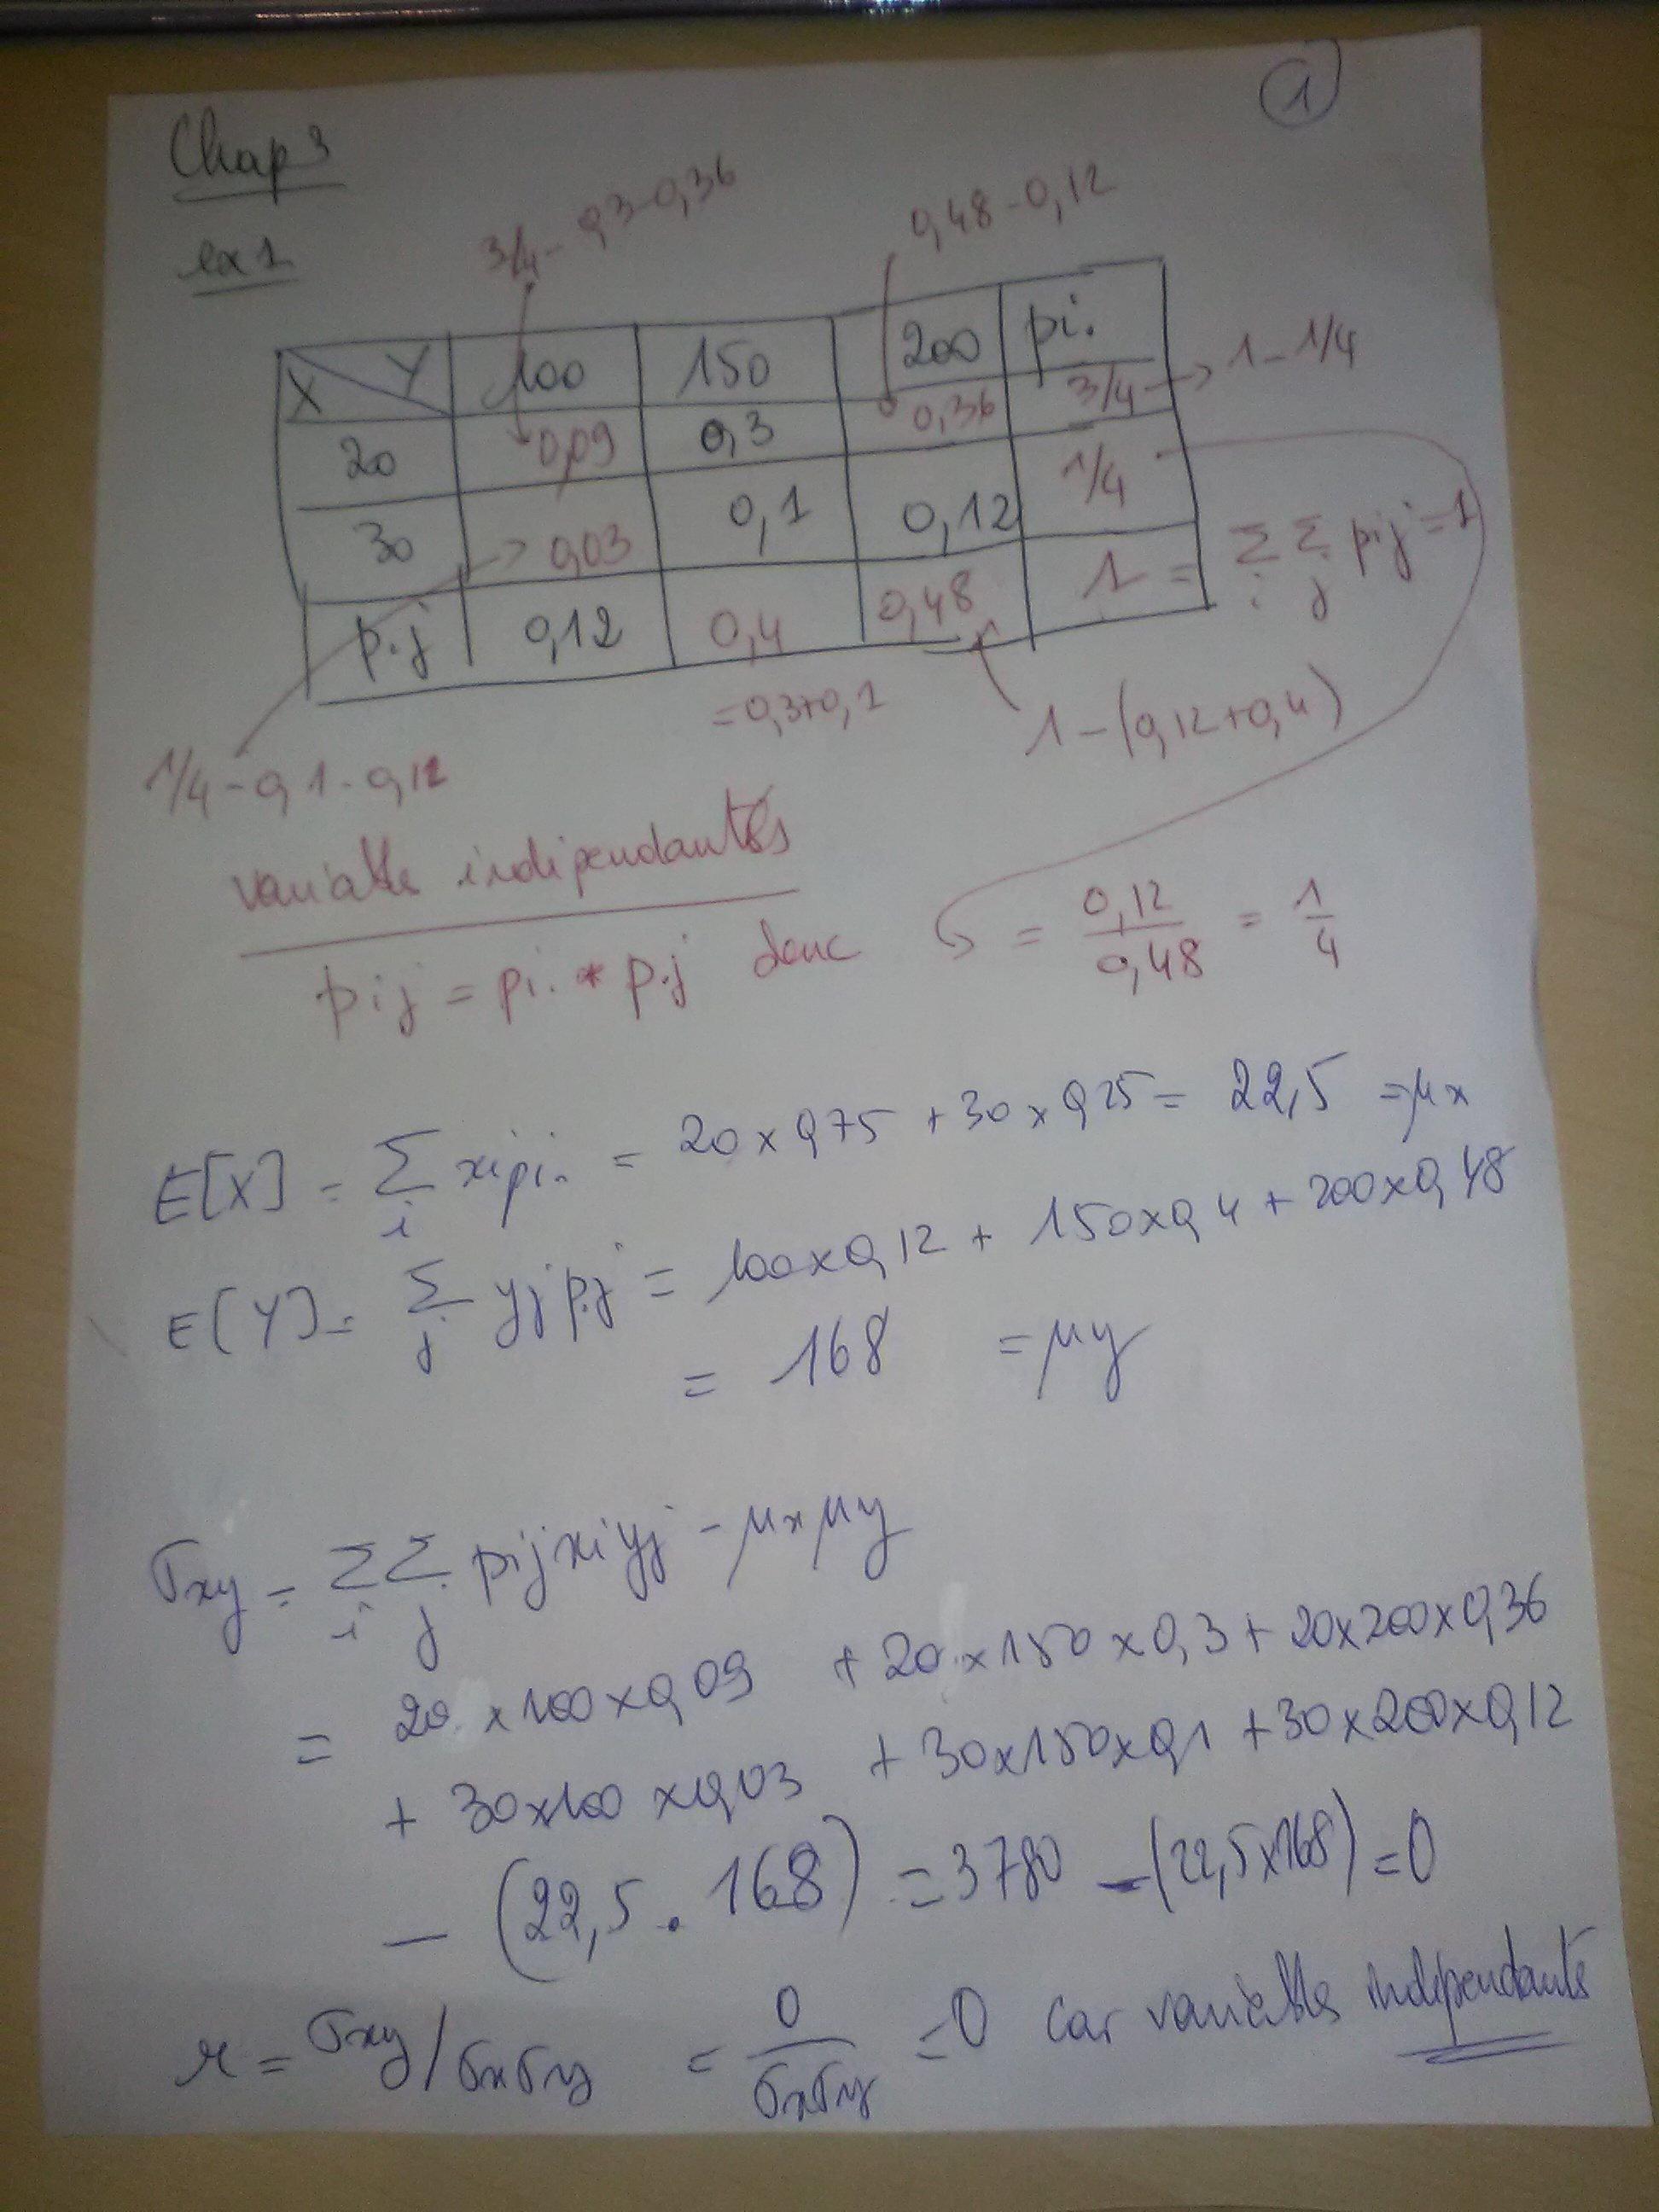 1
Chap 3
ex 1
3/4 - 0,3 - 0,36
0,48 - 0,12
X Y 100 150 200 pi.
20 0,09 0,3 0,36 3/4 → 1 - 1/4
30 0,03 0,1 0,12 1/4
p.j 0,12 0,4 0,48 1 = Σi Σj pij = 1
= 0,3+0,1
1 - (0,12+0,4)
1/4 - 0,1 - 0,12
variables indépendantes
pij = pi. * p.j donc = 0,12/0,48 = 1/4
E[X] = Σi xipi. = 20 x 0,75 + 30 x 0,25 = 22,5 = μx
E[Y] = Σj yj p.j = 100x0,12 + 150x0,4 + 200x0,48
= 168 = μy
σxy = Σi Σj pij xi yj - μx μy
= 20 x 100 x 0,09 + 20 x 150 x 0,3 + 20x200x0,36
+ 30x100 x0,03 + 30x150x0,1 + 30x200x0,12
- (22,5 . 168) = 3780 - (22,5x168) = 0
r = σxy/σxσy = 0/σxσy = 0 car variables indépendantes